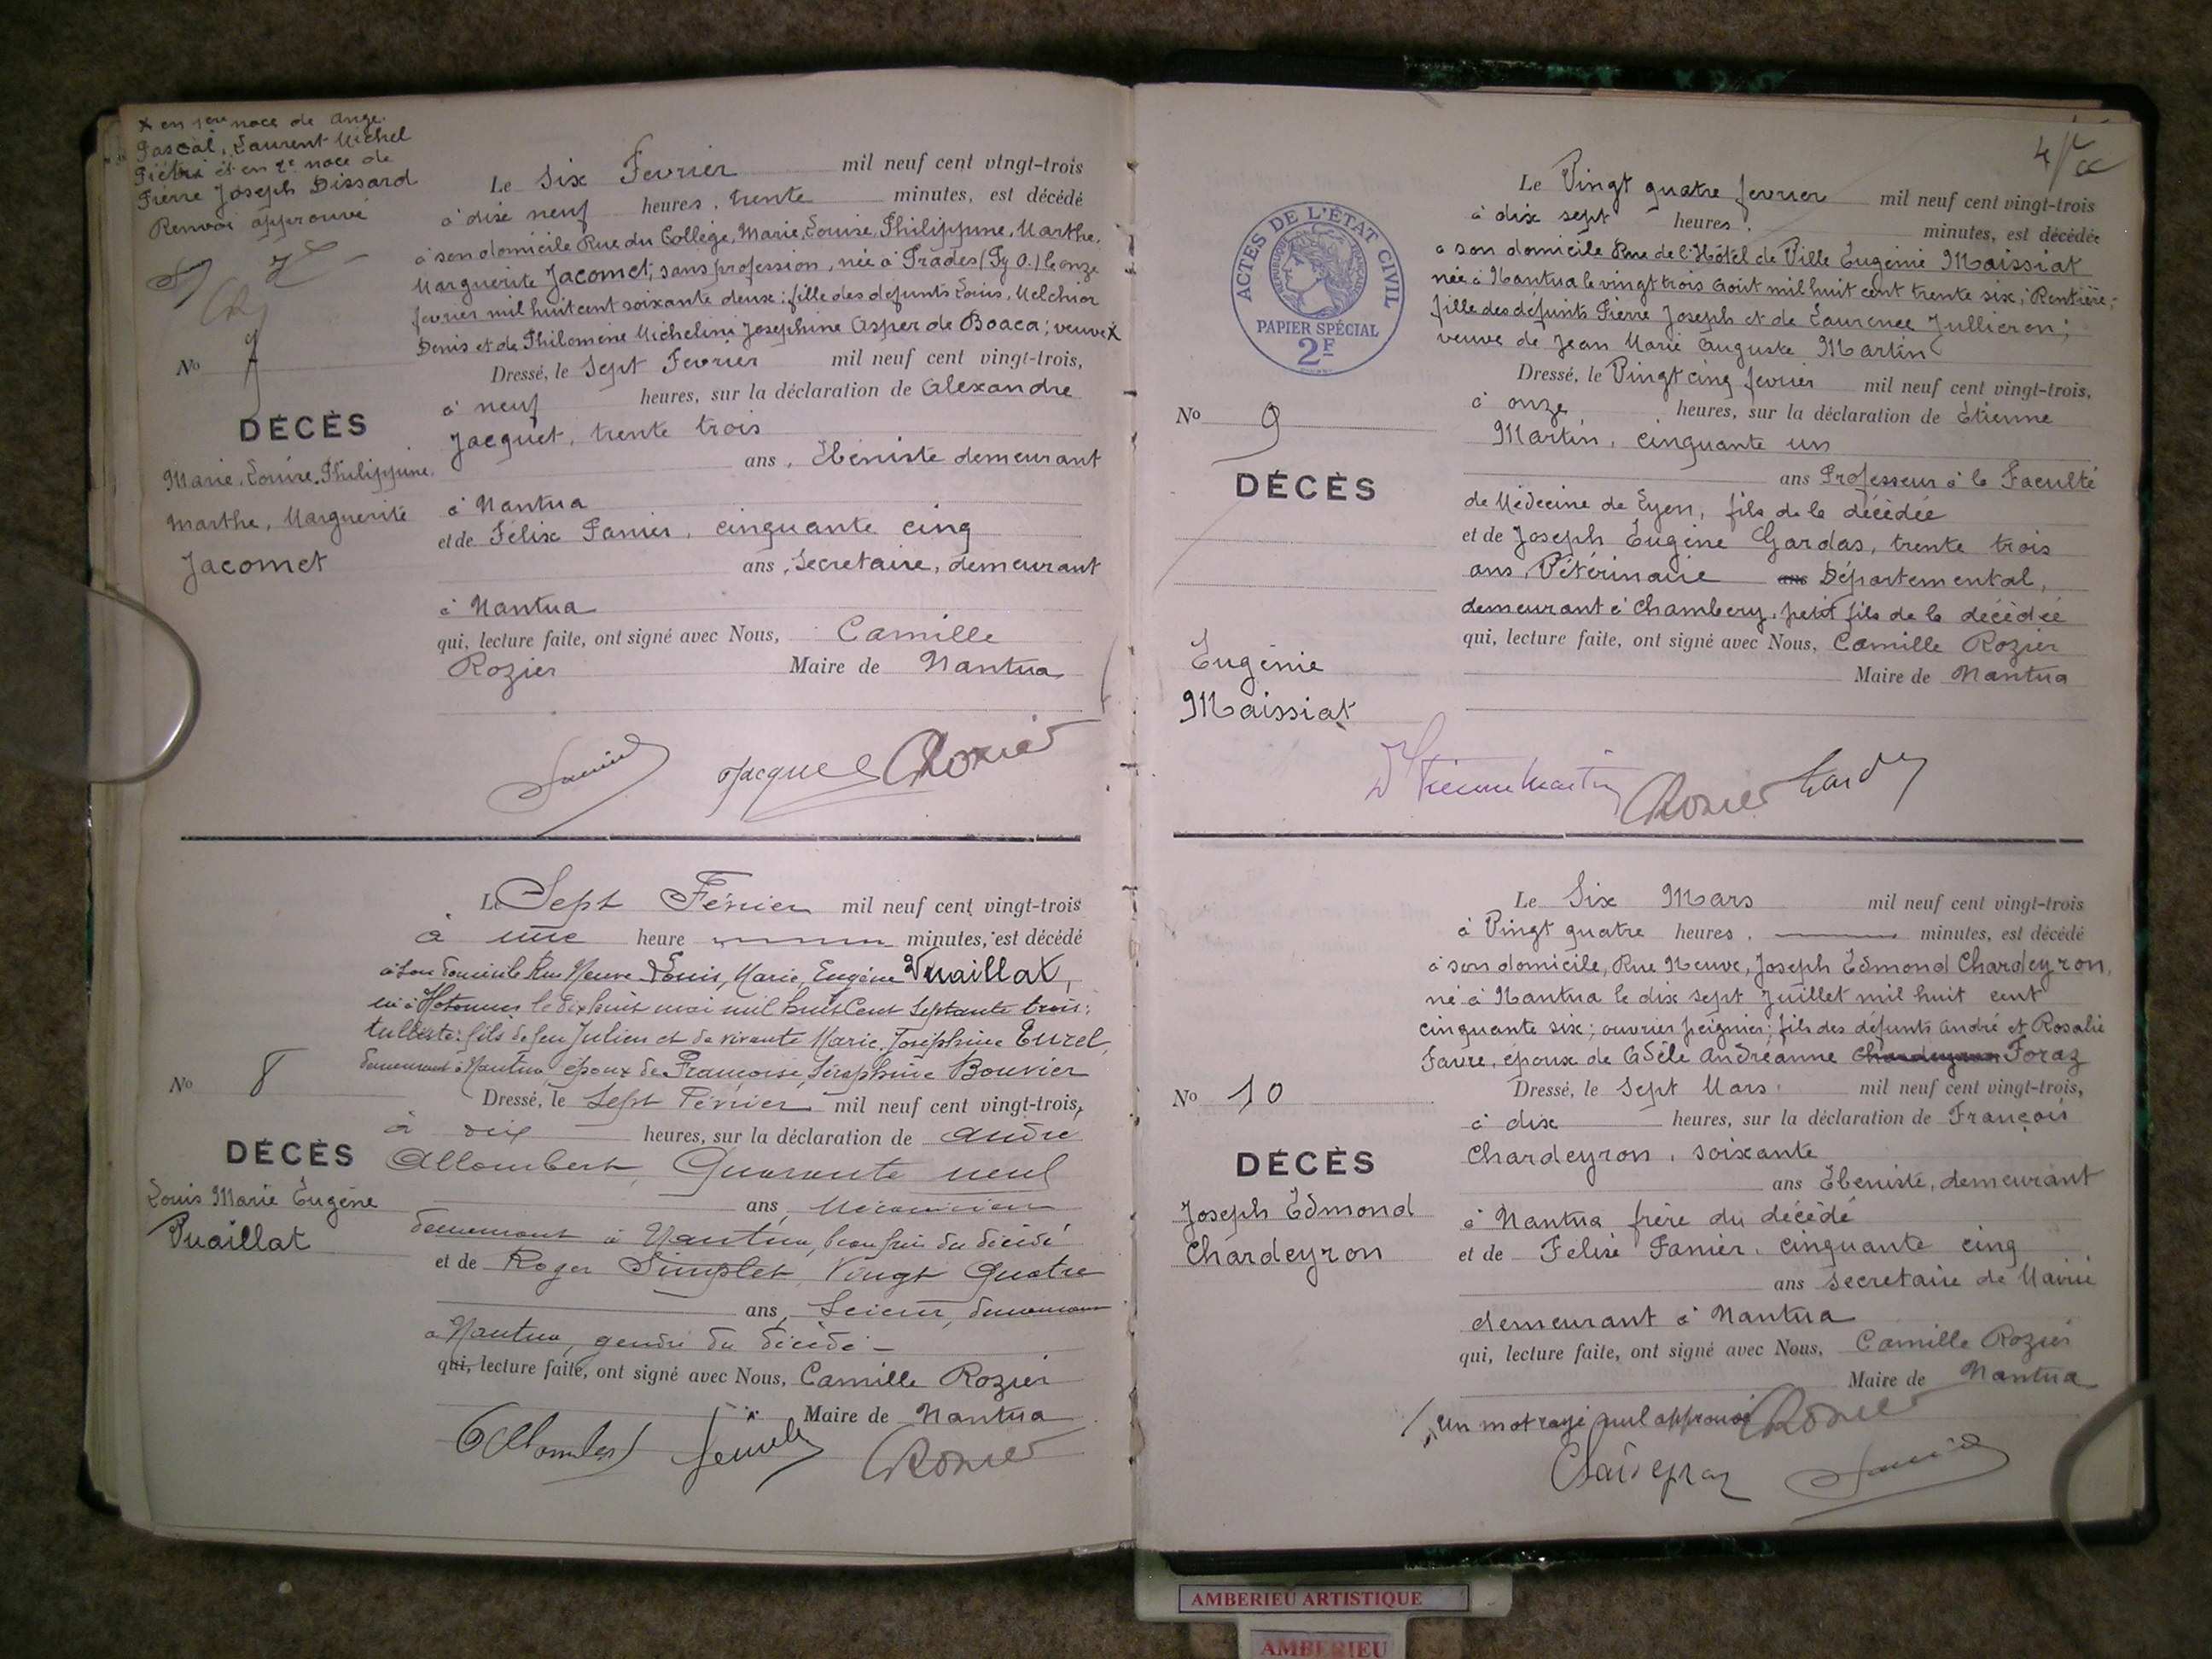 x en 1ere noce de Ange.
Pascal, Laurent Michel
Piétri et en 2e noce de
Pierre Joseph Dissard
Renvoi approuvé
No 7
DÉCÈS
Marie, Louise, Philippine,
Marthe, Marguerite
Jacomet
Le Six Fevrier mil neuf cent vingt-trois
à dix neuf heures, trente minutes, est décédé
à son domicile Rue du Collège, Marie, Louise, Philippine, Marthe,
Marguerite Jacomet; sans profession, née à Prades (Py O.) le onze
fevrier mil huit cent soixante deux; fille des defunts Louis, Melchior
Denis et de Philomène Michelini Josephine Asper de Boaca; veuve x
Dressé, le Sept Fevrier mil neuf cent vingt-trois,
à neuf heures, sur la déclaration de Alexandre
Jacquet, trente trois
ans, Ebeniste demeurant
à Nantua
et de Félix Panier, cinquante cinq
ans, Secretaire, demeurant
à Nantua
qui, lecture faite, ont signé avec Nous, Camille
Rozier Maire de Nantua
Panier Jacquet Rozier
No 8
DÉCÈS
Louis Marie Eugène
Vuaillat
Le Sept Février mil neuf cent vingt-trois
à une heure minutes, est décédé
à son domicile Rue Neuve Louis, Marie, Eugène Vuaillat,
né à Hotonnes le dix huit mai mil huit Cent Septante trois;
tulliste: fils de feu Julien et de vivante Marie, Joséphine Eurel,
demeurant à Nantua, époux de Françoise, Séraphine Bouvier
Dressé, le Sept Février mil neuf cent vingt-trois,
à dix heures, sur la déclaration de André
Allombert, Quarante neuf
ans, Mécanicien
demeurant à Nantua, beau frère du décédé
et de Roger Simplet, Vingt Quatre
ans, Scieur, demeurant
à Nantua, gendre du décédé -
qui, lecture faite, ont signé avec Nous, Camille Rozier
Maire de Nantua
Allombert Rozier
4
ACTES DE L'ÉTAT CIVIL
RÉPUBLIQUE FRANÇAISE
PAPIER SPÉCIAL
2F
No 9
DÉCÈS
Eugénie
Maissiat
Le Vingt quatre fevrier mil neuf cent vingt-trois
à dix sept heures, minutes, est décédée
à son domicile Rue de l'Hôtel de Ville Eugénie Maissiat
née à Nantua le vingt trois Aout mil huit cent trente six; Rentière,
fille des défunts Pierre Joseph et de Laurence Jullieron;
veuve de Jean Marie Auguste Martin
Dressé, le Vingt cinq fevrier mil neuf cent vingt-trois,
à onze heures, sur la déclaration de Etienne
Martin, cinquante un
ans Professeur à la Faculté
de Médecine de Lyon, fils de la décédée
et de Joseph Eugène Gardas, trente trois
ans, Vétérinaire ans Départemental,
demeurant à Chambery, petit fils de la décédée
qui, lecture faite, ont signé avec Nous, Camille Rozier
Maire de Nantua
Dr Etienne Martin Rozier
No 10
DÉCÈS
Joseph Edmond
Chardeyron
Le Six Mars mil neuf cent vingt-trois
à Vingt quatre heures, minutes, est décédé
à son domicile, Rue Neuve, Joseph Edmond Chardeyron,
né à Nantua le dix sept Juillet mil huit cent
cinquante six; ouvrier peignier; fils des défunts André et Rosalie
Favre, époux de Adèle Andréanne Chardeyron Foraz
Dressé, le Sept Mars mil neuf cent vingt-trois,
à dix heures, sur la déclaration de François
Chardeyron, soixante
ans Ebeniste, demeurant
à Nantua frère du décédé
et de Félix Panier, cinquante cinq
ans secretaire de Mairie
demeurant à Nantua
qui, lecture faite, ont signé avec Nous, Camille Rozier
Maire de Nantua
Un mot rayé nul approuvé Rozier
Chardeyron Panier
AMBERIEU ARTISTIQUE
AMBERIEU